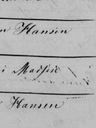 n Hansen
i Madsen
Hansen